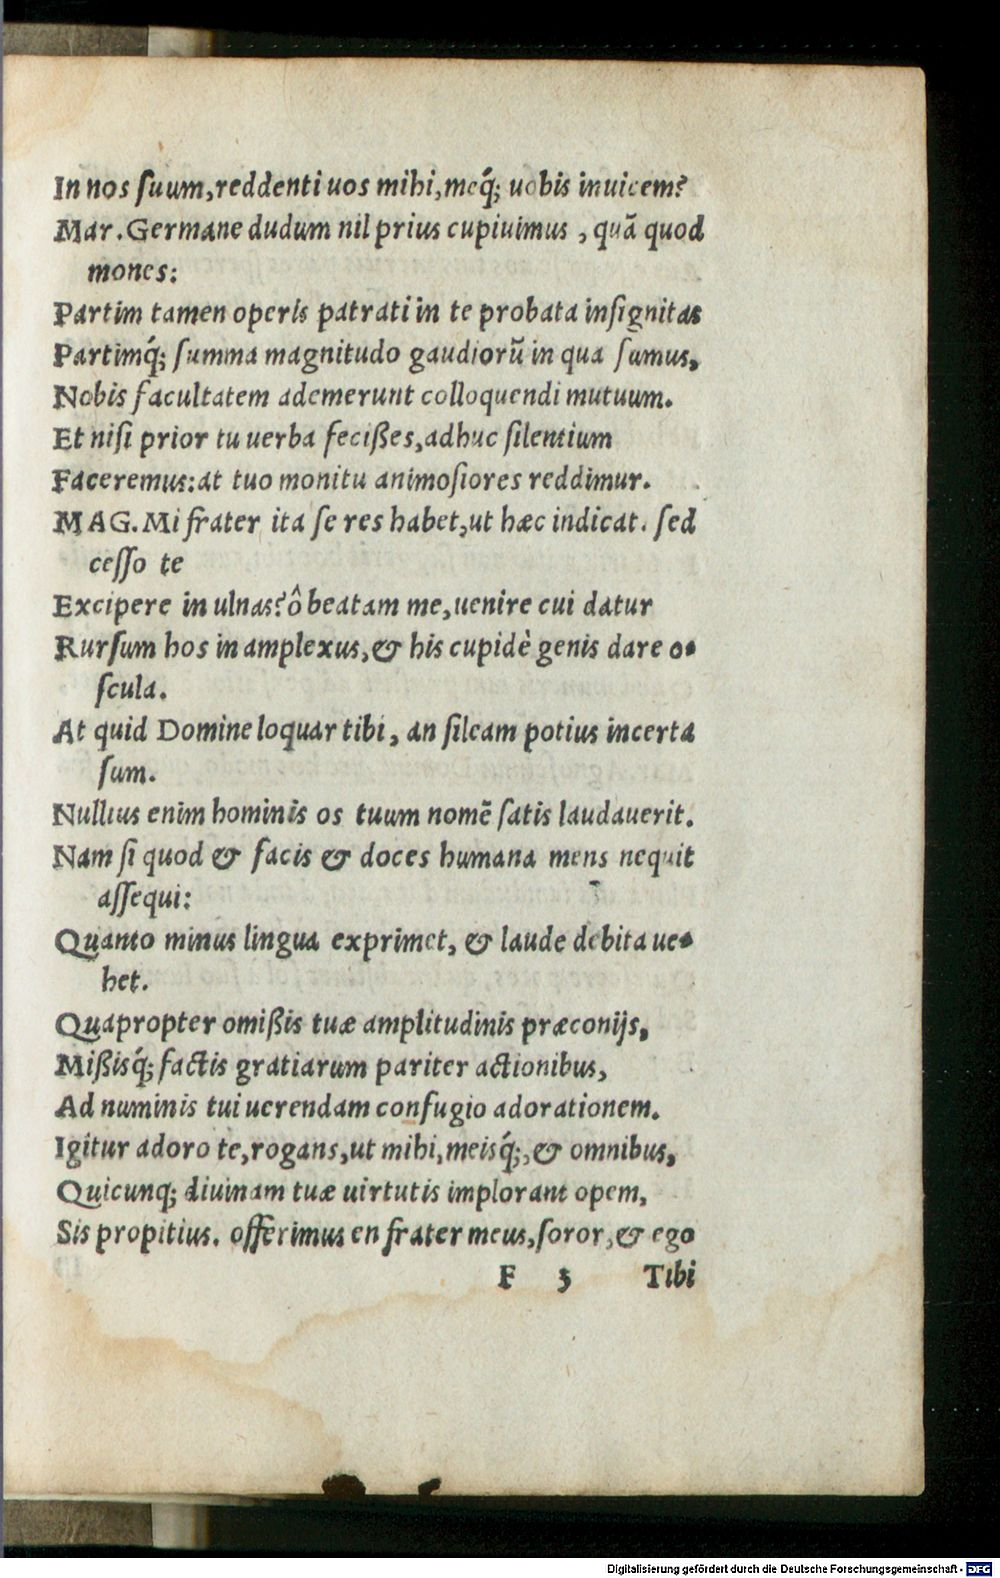 In nos suum,reddenti uos mihi,meq́; uobis inuicem?
Mar.Germane dudum nil prius cupiuimus , quã quod
mones:
Partim tamen operis patrati in te probata insignitas
Partimq́; summa magnitudo gaudiorũ in qua sumus,
Nobis facultatem ademerunt colloquendi mutuum.
Et nisi prior tu uerba fecißes,adhuc silentium
Faceremus:at tuo monitu animosiores reddimur.
MAG.Mi frater ita se res habet,ut hæc indicat. sed
cesso te
Excipere in ulnas?ô beatam me,uenire cui datur
Rursum hos in amplexus,& his cupidè genis dare o-
scula.
At quid Domine loquar tibi, an sileam potius incerta
sum.
Nullius enim hominis os tuum nomẽ satis laudauerit.
Nam si quod & facis & doces humana mens nequit
assequi:
Quanto minus lingua exprimet, & laude debita ue-
het.
Quapropter omißis tuæ amplitudinis præconijs,
Mißisq́; factis gratiarum pariter actionibus,
Ad numinis tui uerendam confugio adorationem.
Igitur adoro te,rogans,ut mihi,meisq́;,& omnibus,
Quicunq; diuinam tuæ uirtutis implorant opem,
Sis propitius. offerimus en frater meus,soror,& ego
F 3 Tibi
Digitalisierung gefördert durch die Deutsche Forschungsgemeinschaft - DFG